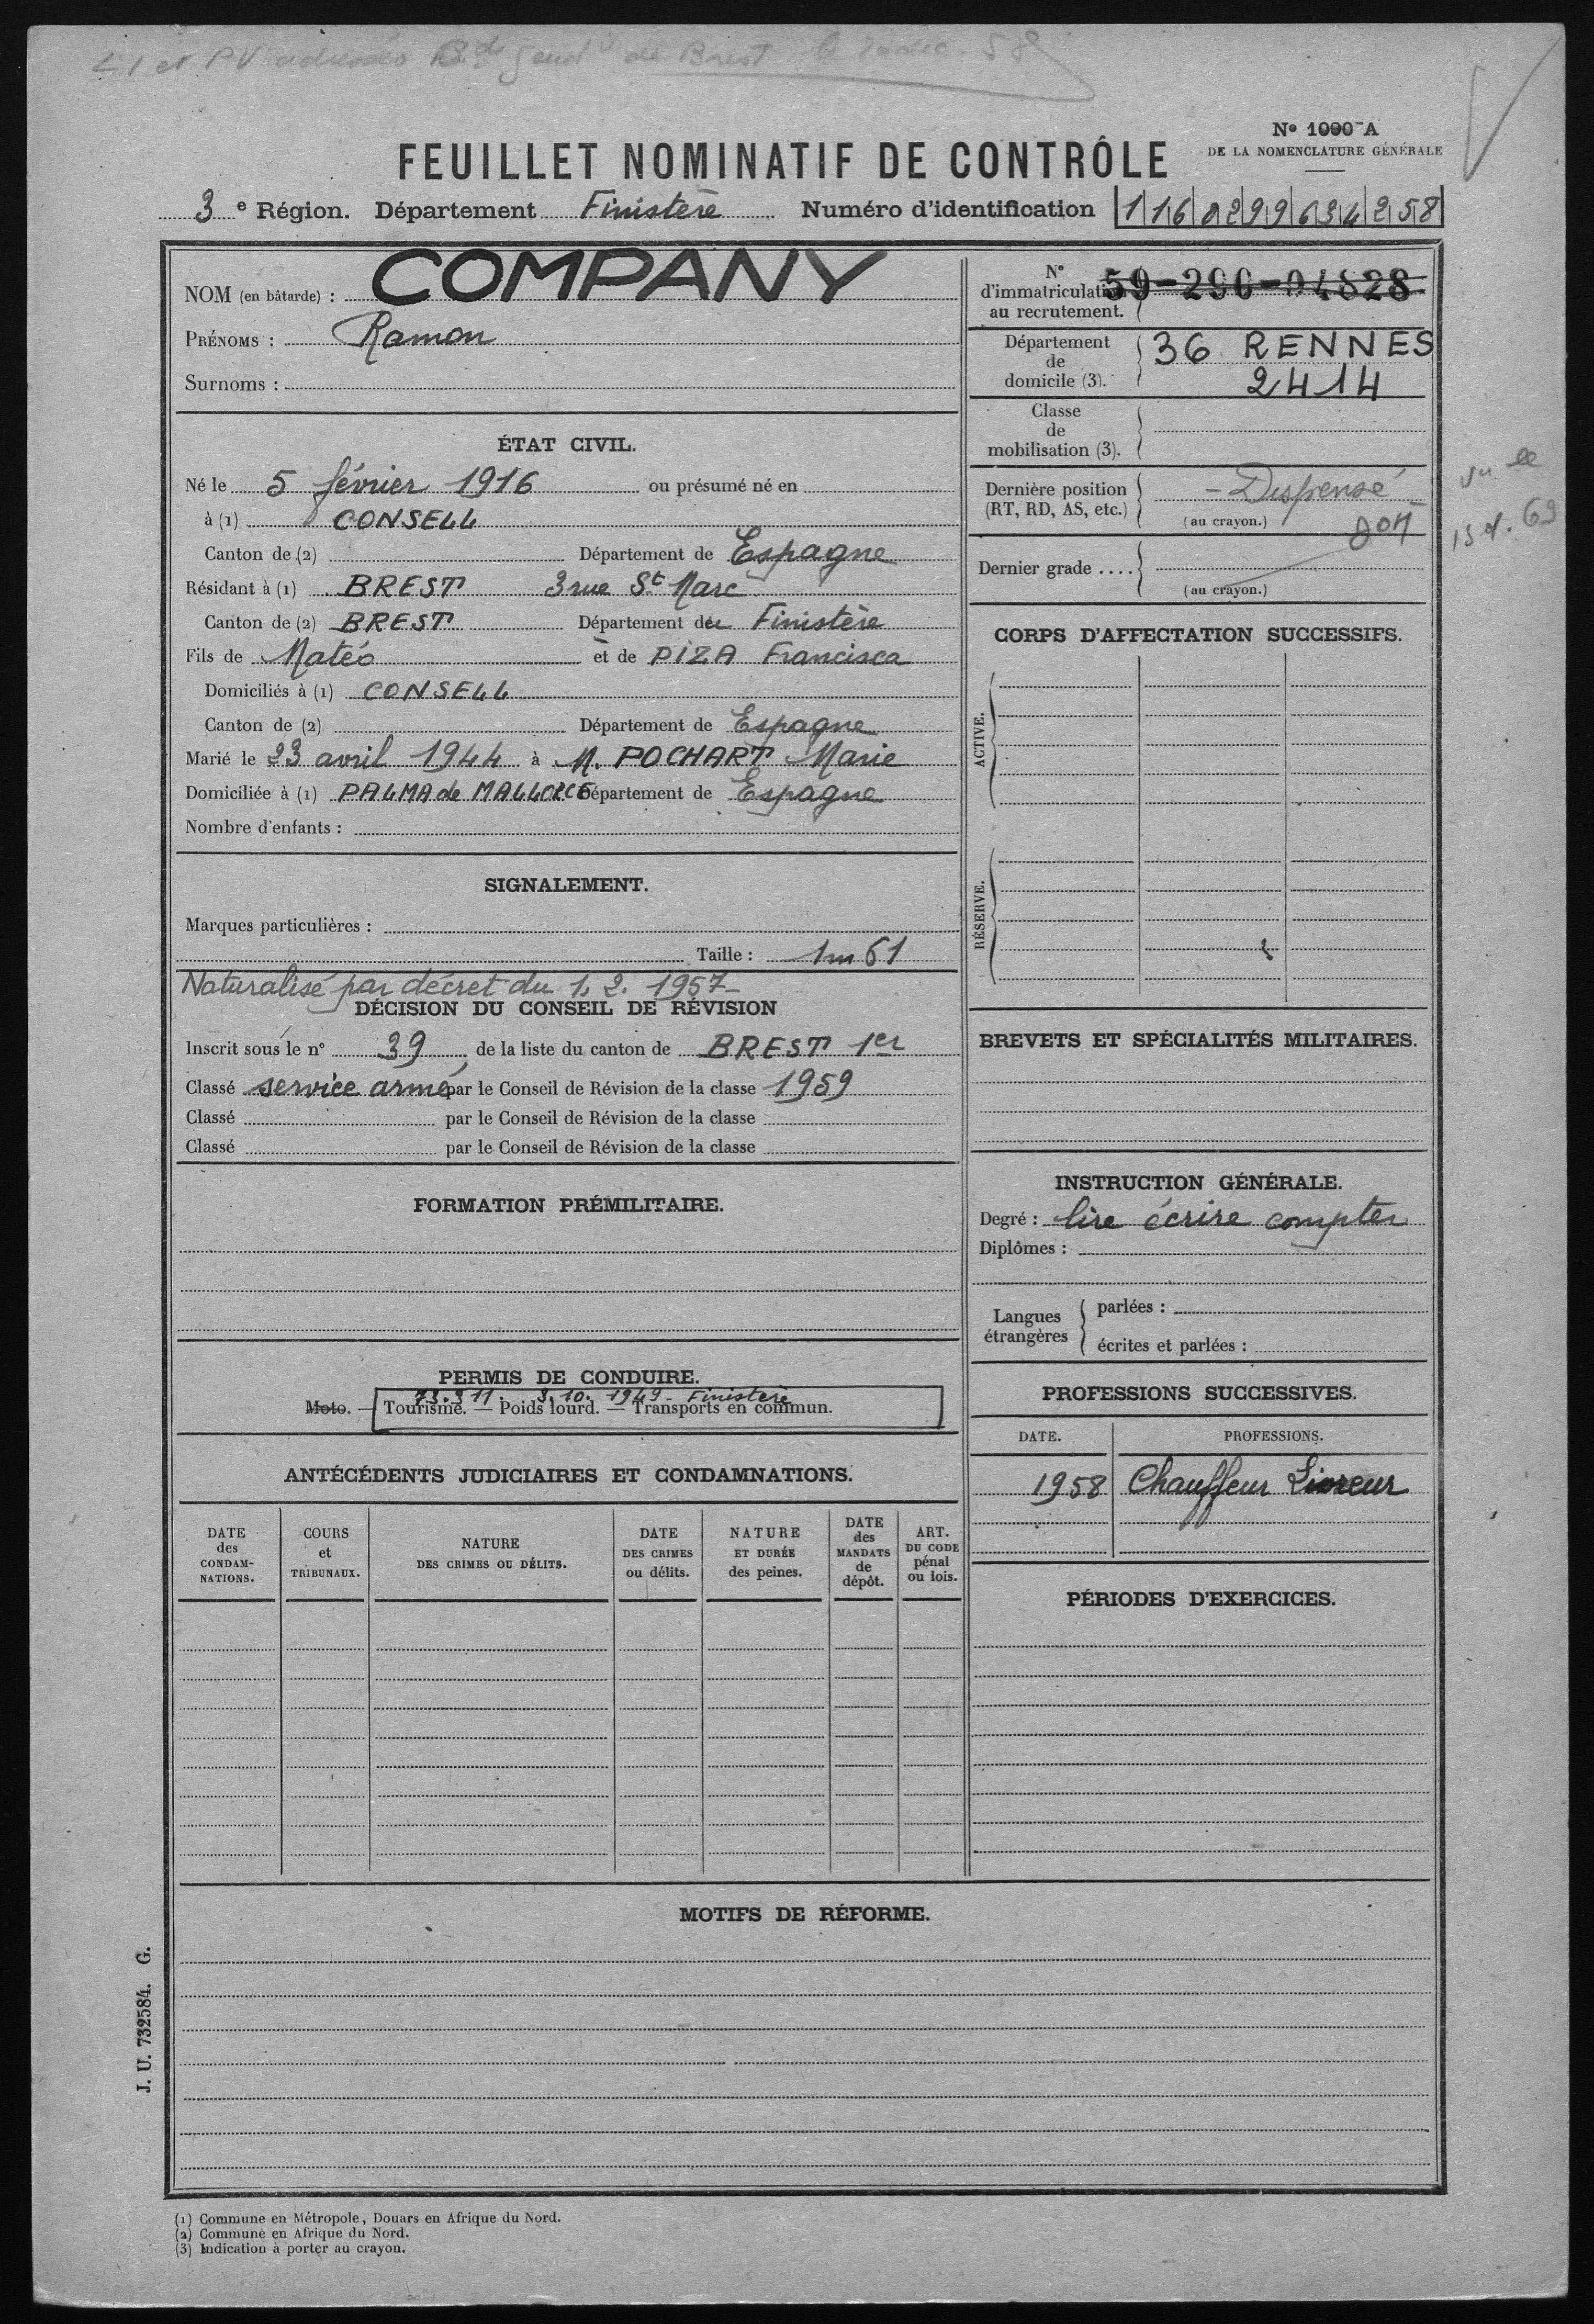 et PV adressés Bde gend ie de Brest le 20 dec. 58
N° 1000-A
DE LA NOMENCLATURE GÉNÉRALE
FEUILLET NOMINATIF DE CONTRÔLE
3 e Région. Département Finistère Numéro d'identification
NOM (en bâtarde) : COMPANY
PRÉNOMS : Ramon
Surnoms :
ÉTAT CIVIL.
Né le 5 février 1916 ou présumé né en
à (1) CONSELL
Canton de (2) Département de Espagne
Résidant à (1) BREST 3 rue St Marc
Canton de (2) BREST Département du Finistère
Fils de Matéo et de PIZA Francisca
Domiciliés à (1) CONSELL
Canton de (2) Département de Espagne
Marié le 23 avril 1944 à M. POCHART Marie
Domiciliée à (1) PALMA de Département de Espagne
Nombre d'enfants :
SIGNALEMENT.
Marques particulières :
Taille : 1m61
Naturalisé par décret du 1. 2. 1957
DÉCISION DU CONSEIL DE RÉVISION
Inscrit sous le n° 39 de la liste du canton de BREST 1er
Classé service armé par le Conseil de Révision de la classe 1959
Classé par le Conseil de Révision de la classe
Classé par le Conseil de Révision de la classe
FORMATION PRÉMILITAIRE.
PERMIS DE CONDUIRE.
73.311. 3.10.1949 - Finistère
Moto. — Tourisme. — Poids lourd. — Transports en commun.
ANTÉCÉDENTS JUDICIAIRES ET CONDAMNATIONS.
DATE
des
CONDAM-
NATIONS.
COURS
et
TRIBUNAUX.
NATURE
DES CRIMES OU DÉLITS.
DATE
DES CRIMES
ou délits.
NATURE
ET DURÉE
des peines.
DATE
des
MANDATS
de
dépôt.
ART.
DU CODE
pénal
ou lois.
N°
d'immatriculation
au recrutement.
59-290-04828
Département
de
domicile (3).
36 RENNES
2414
Classe
de
mobilisation (3).
Dernière position
(RT, RD, AS, etc.)
- Dispensé
(au crayon.)
Dernier grade ....
(au crayon.)
CORPS D'AFFECTATION SUCCESSIFS.
ACTIVE.
RÉSERVE.
BREVETS ET SPÉCIALITÉS MILITAIRES.
INSTRUCTION GÉNÉRALE.
Degré : lire écrire compter
Diplômes :
Langues
étrangères
parlées :
écrites et parlées :
PROFESSIONS SUCCESSIVES.
DATE. PROFESSIONS.
1958 Chauffeur Livreur
PÉRIODES D'EXERCICES.
MOTIFS DE RÉFORME.
J. U. 732584. G.
(1) Commune en Métropole, Douars en Afrique du Nord.
(2) Commune en Afrique du Nord.
(3) Indication à porter au crayon.